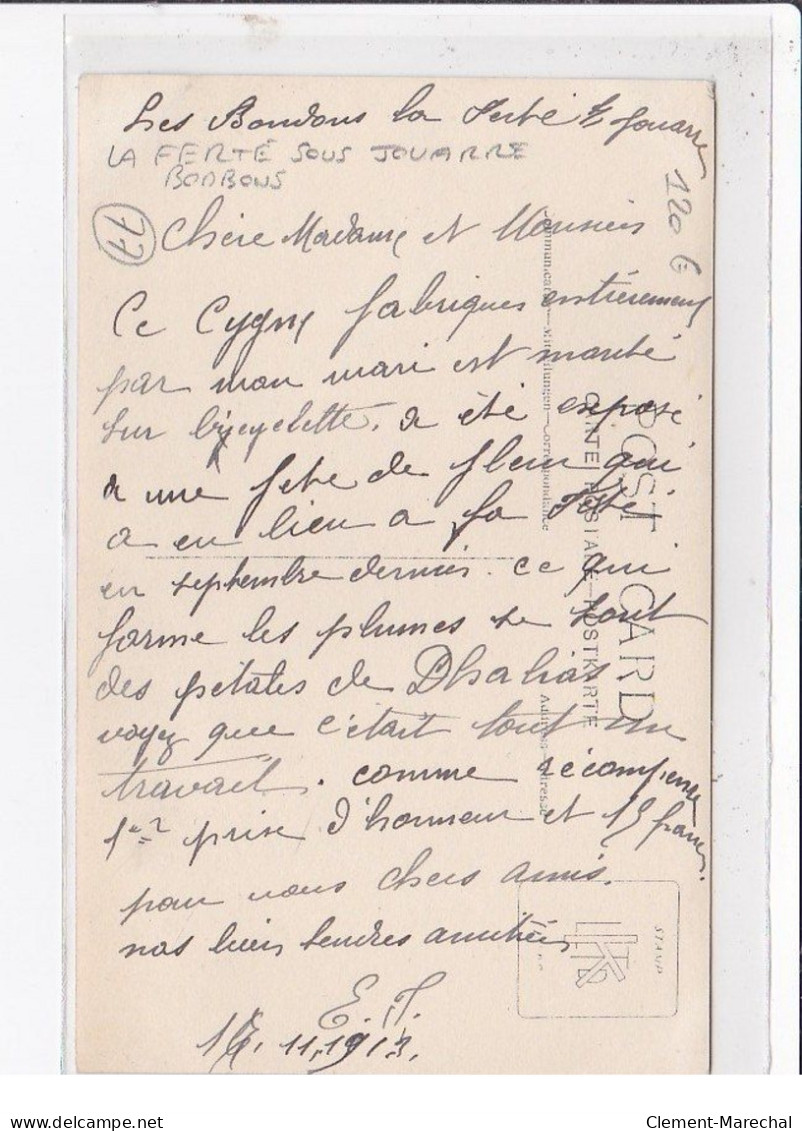 Les Bondons la Ferté s/ Jouarre
LA FERTÉ SOUS JOUARRE
BONBONS
77
120 €
Chère Madame et Monsieur
Ce Cygne fabriques entièrement
par mon mari est monté
sur bicyclette. a été exposé
a une fete de fleur qui
a eu lieu a la Ferté.
en septembre dernier. ce qui
forme les plumes se sont
des pétales de Dhalias
voyez que c'était tout un
travail. comme récompense
1er prise d'honneur et 15 francs.
pour vous chers amis.
nos bien tendres amitiés
E. T.
11.1913.
POST CARD
CARTE POSTALE—POSTKARTE
Correspondance
STAMP
Clement-Marechal